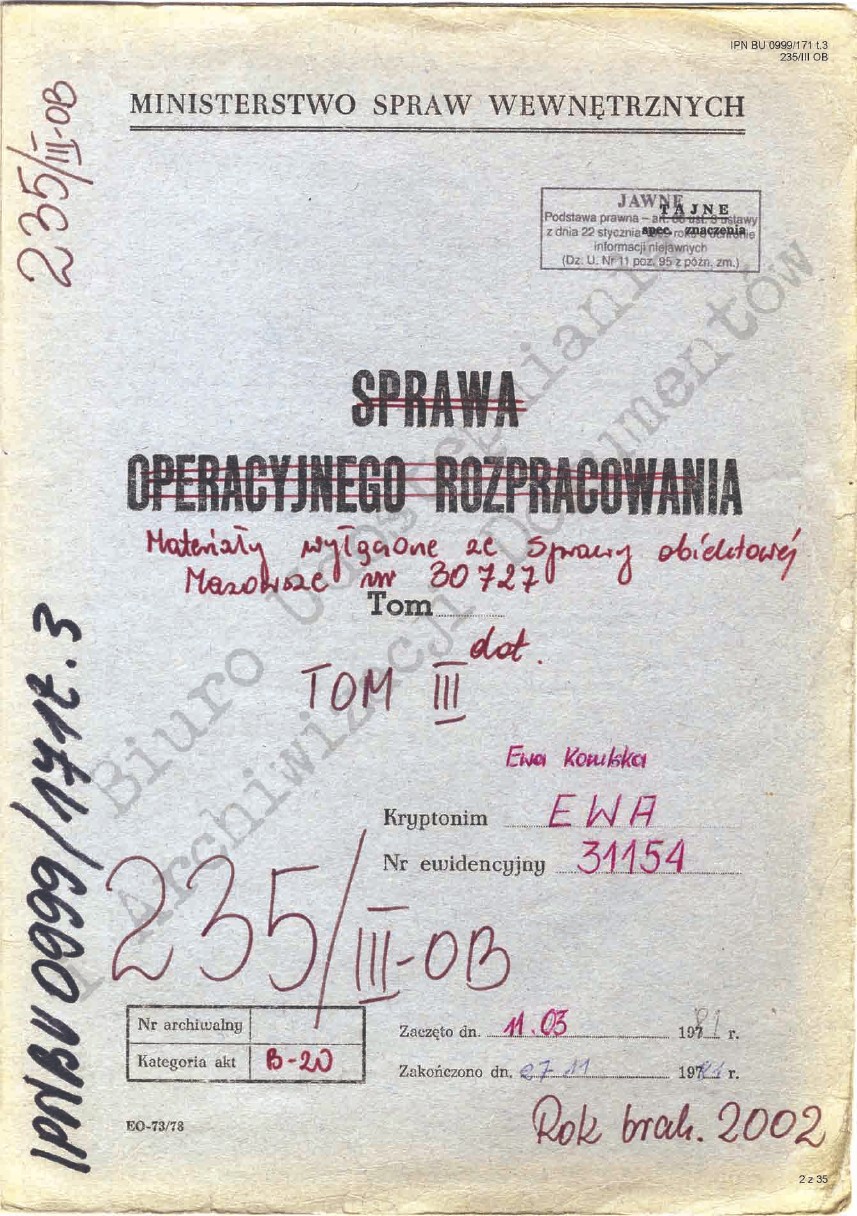 IPN BU 0999/171 t.3
235/III OB
235/III-OB
MINISTERSTWO SPRAW WEWNĘTRZNYCH
JAWNE
TAJNE
spec. znaczenia
Podstawa prawna – art. 86 ust. 3 ustawy
z dnia 22 stycznia roku o ochronie
informacji niejawnych
(Dz. U. Nr 11 poz. 95 z późn. zm.)
SPRAWA
OPERACYJNEGO ROZPRACOWANIA
Materiały wyłączone ze Sprawy obiektowej
Mazowsze nr 30727
Tom
dot.
TOM III
Ewa
Kryptonim EWA
Nr ewidencyjny 31154
235/III-OB
Nr archiwalny
Kategoria akt B-20
Zaczęto dn. 11.03 1981 r.
Zakończono dn. 27 11 1981 r.
EO-73/78
Rok brak. 2002
IPN BU 0999/171 t. 3
Biuro Udostępniania
i Archiwizacji Dokumentów
2 z 35